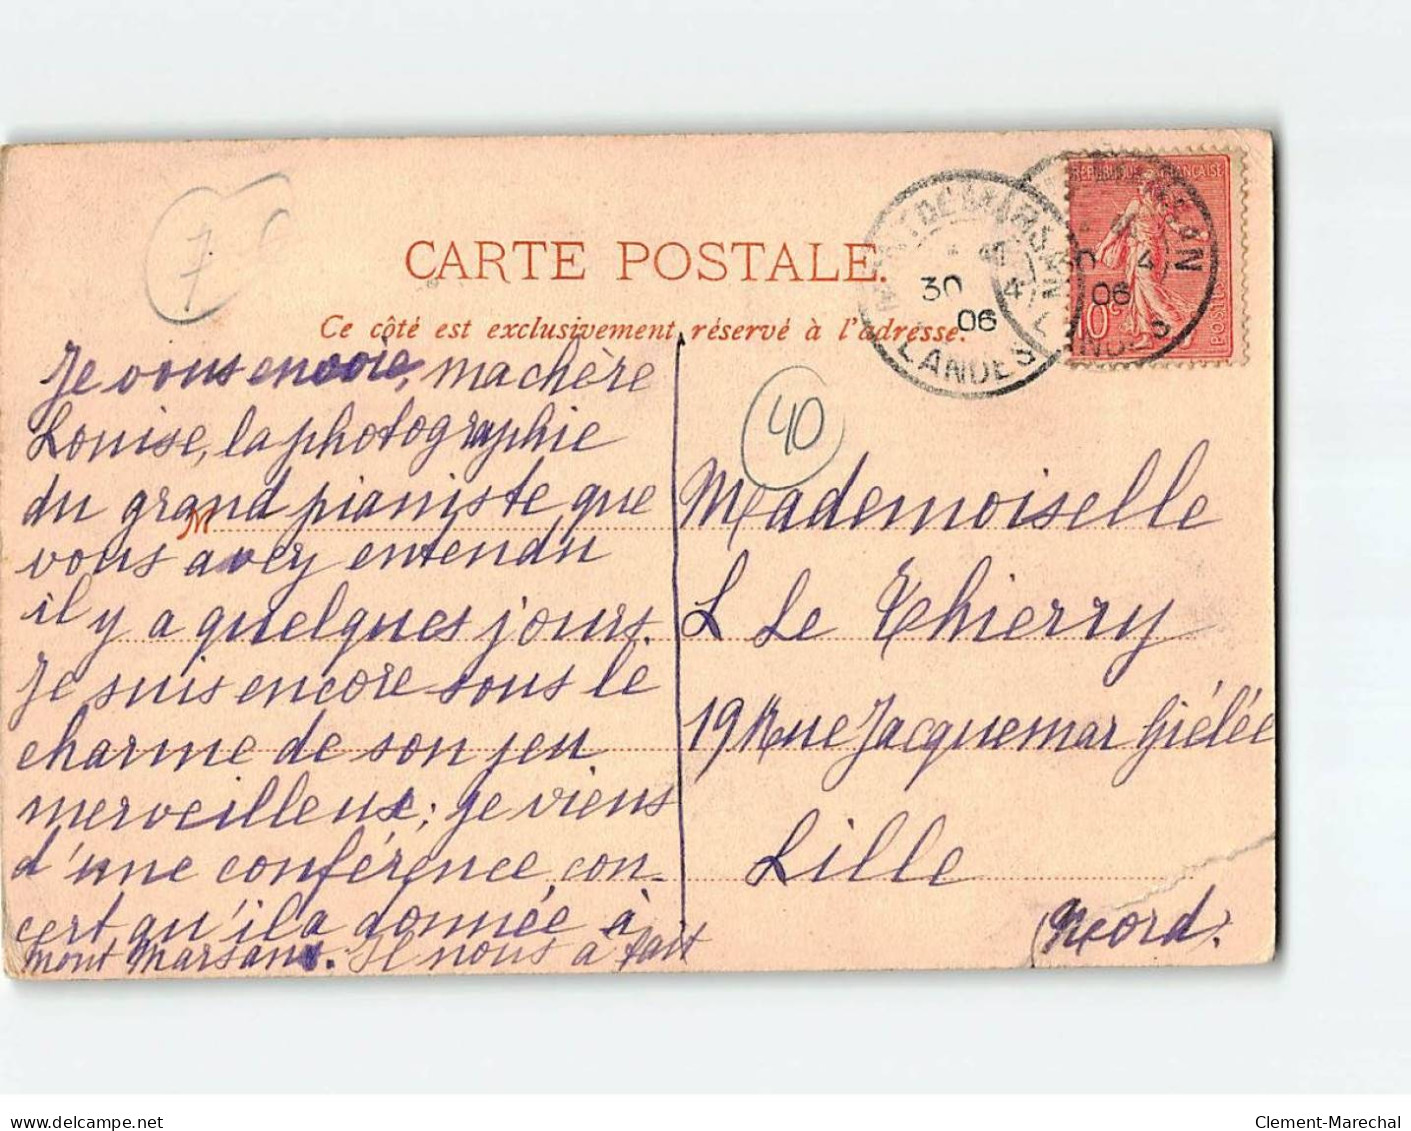 CARTE POSTALE.
Ce côté est exclusivement réservé à l'adresse.
RÉPUBLIQUE FRANÇAISE
10c
POSTES
MONT DE MARSAN
30
4
06
LANDES
30
4
06
LANDES
7
40
Je vous envoie, ma chère
Louise, la photographie
du grand pianiste que
vous avez entendu
il y a quelques jours.
Je suis encore sous le
charme de son jeu
merveilleux; je viens
d'une conférence, con-
cert qu'il a donnée à
Mont Marsan. Il nous a fait
Mademoiselle
L Le Thierry
19 Rue Jacquemar Giélée
Lille
(Nord)
delcampe.net
Clement-Marechal